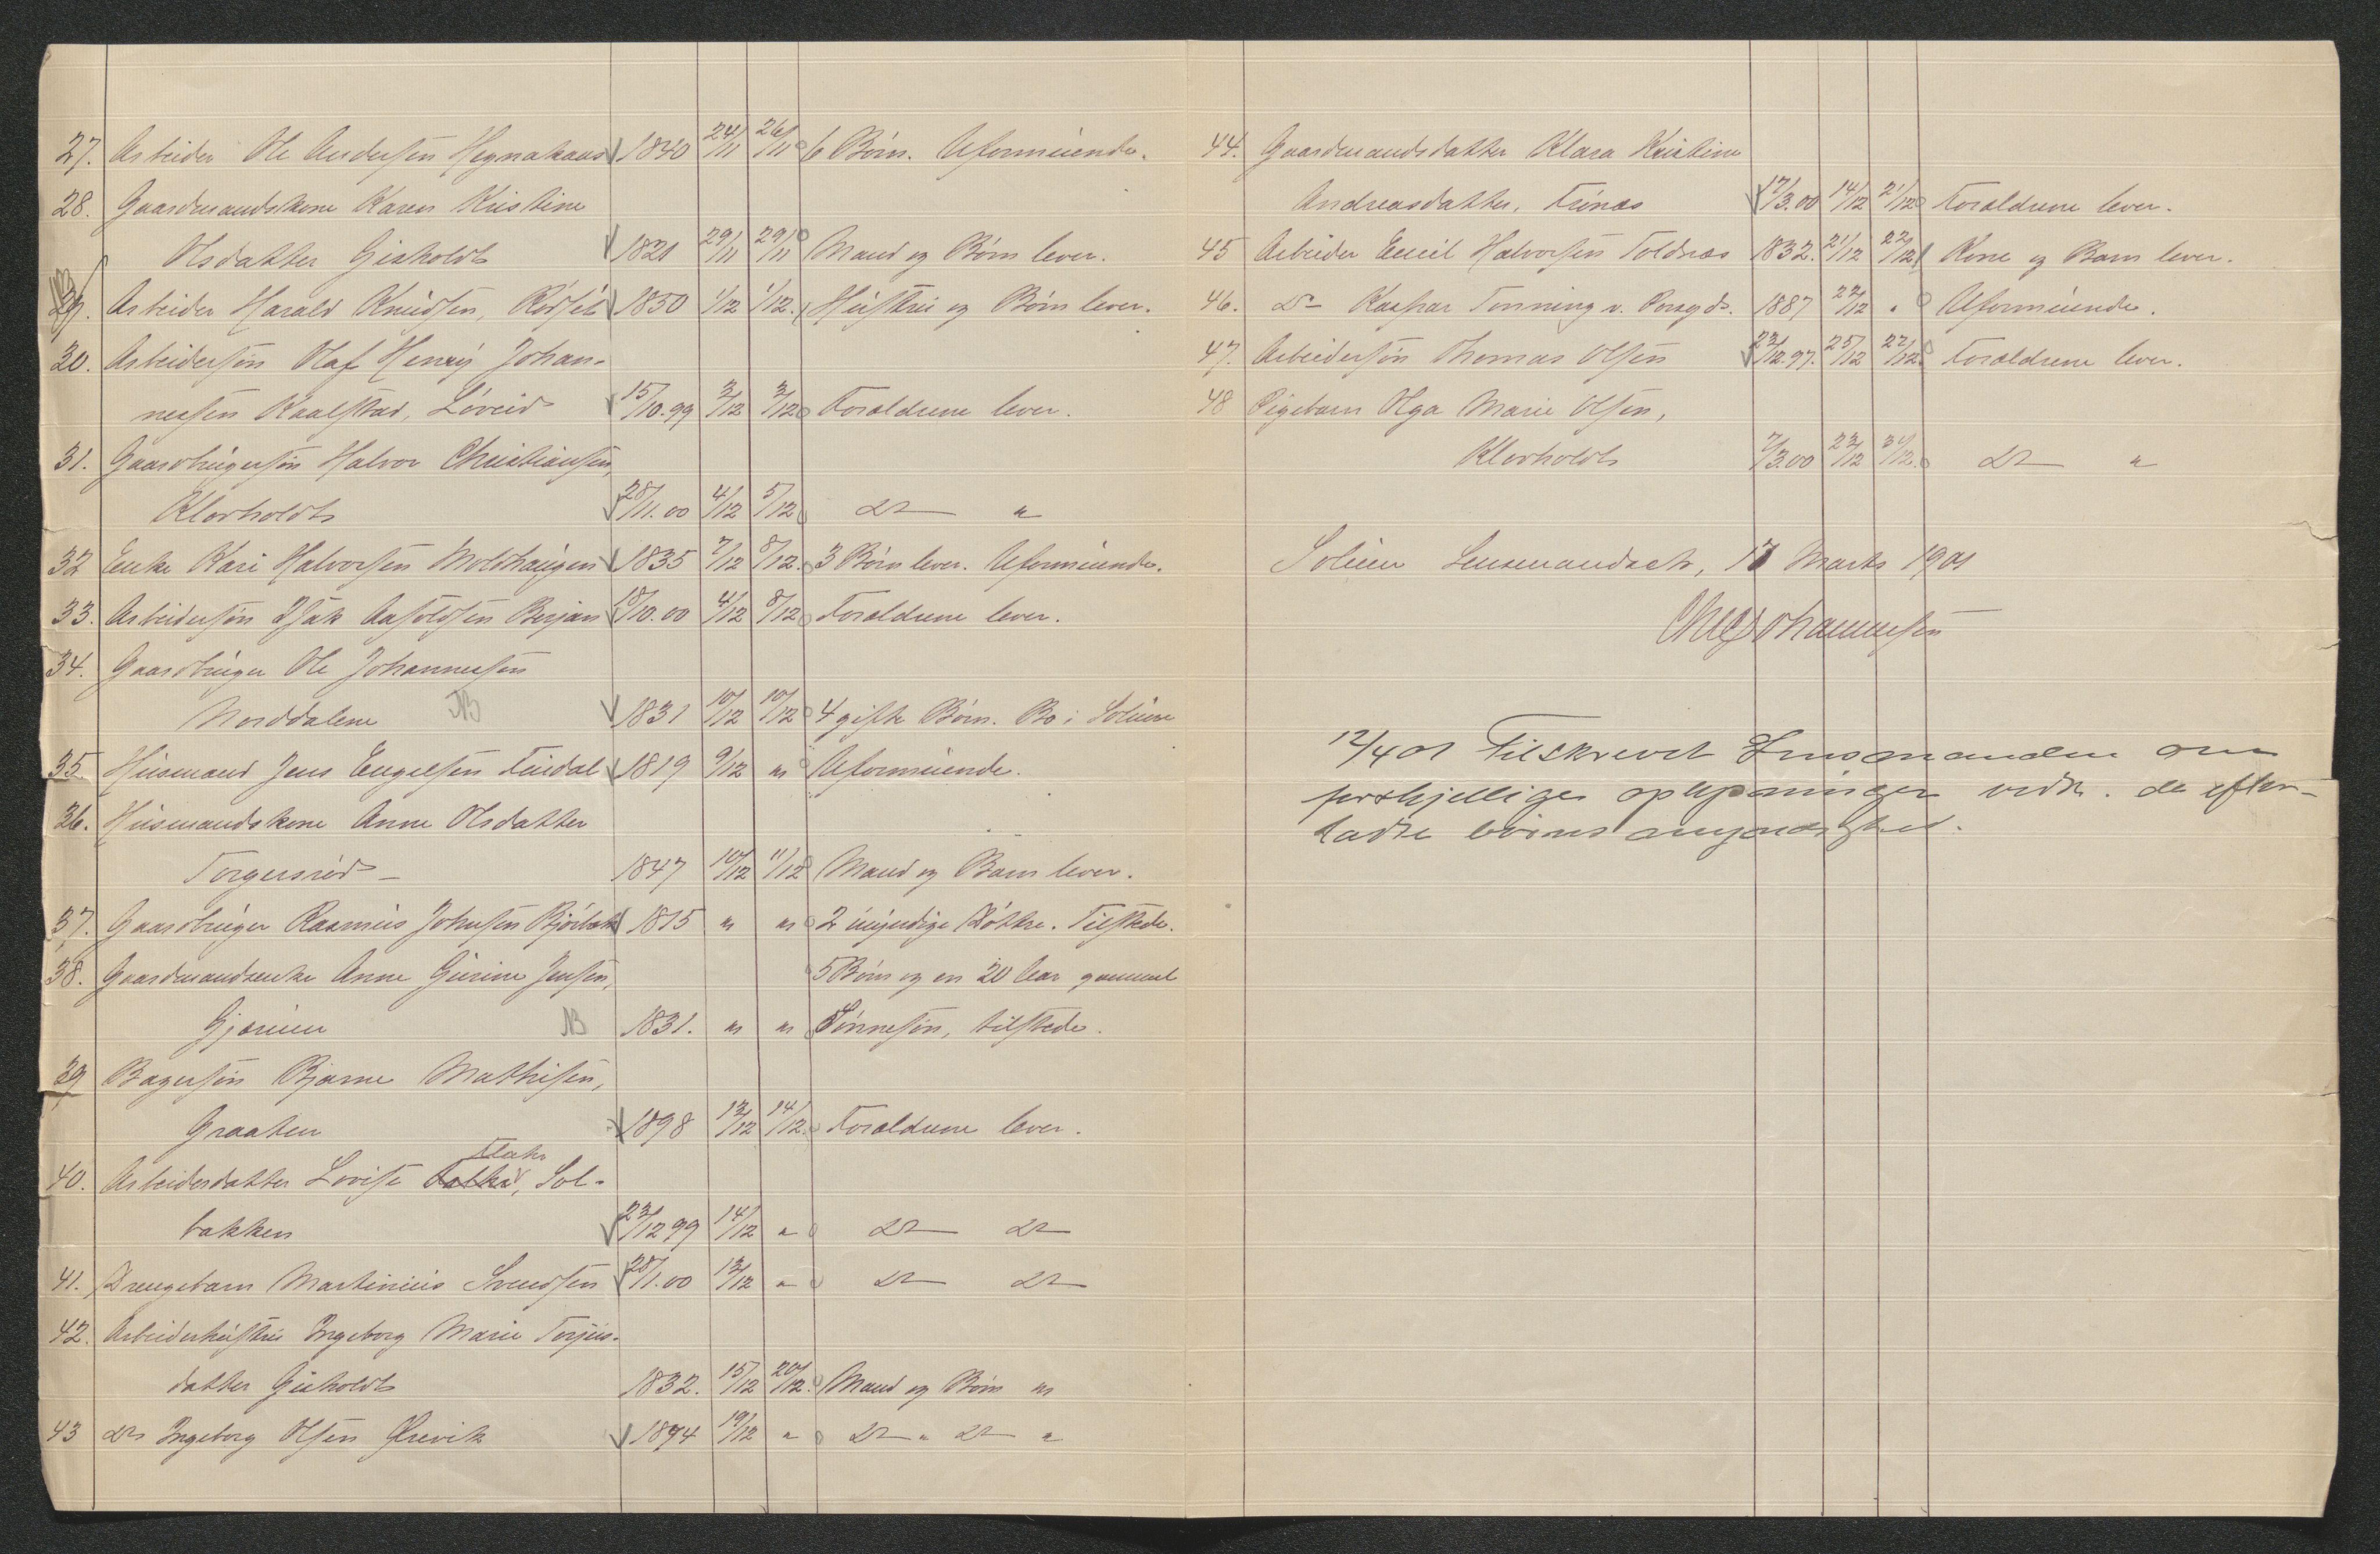 27. Arbeider Ole Andersen Hegnahaus 1840 24/11 26/11 6 Børn. Uformuende.
28. Gaardmandskone Karen Kristine
Olsdatter Gisholdt 1821 29/11 29/11 Mand og Børn lever.
29. Arbeider Harald Knudsen, Rödset 1850 1/12 1/12. Hustru og Børn lever.
30. Arbeidersön Olaf Henry Johan-
nessen Kaalstad, Löveid 15/10.99 3/12 3/12 Forældrene lever.
31. Gaardbrugersön Halvor Christiansen,
Klovholdt 28/11.00 4/12 5/12 do "
32 Enke Kari Halvorsen Moldhaugen 1835 7/12 8/12. 3 Börn lever. Uformuende.
33. Arbeidersön Isak Aasoldsen Berjan 18/10.00 4/12 8/12 Forældrene lever.
34. Gaardbruger Ole Johannessen
Norddalene NB 1831 10/12 10/12 4 gifte Börn. Bo i Solum
35. Husmand Jens Engelsen Fuidal 1819 9/12 " Uformuende.
36. Husmandskone Anne Olsdatter
Torgersröd 1847 10/12 11/12 Mand og Barn lever.
37. Gaardbruger Rasmus Johnsen Björbæk 1815 " " 2 myndige Döttre. Tilstede.
38. Gaardmandsenke Anne Gurine Jensen, 5 Börn og en 20 Aar gammel
Gjærum NB 1831. " " Sönnesön, tilstede.
39 Bagersön Bjarne Mathisen,
Graaten 1898 13/12 14/12. Forældrene lever.
40. Arbeiderdatter Lovise Sol-
bakken 23/12 99 14/12 " do do
41. Drengebarn Martinius Svendsen 28/1.00 13/12 " do do
42. Arbeiderhustru Ingeborg Marie Torjus-
datter Gisholdt 1832. 15/12 20/12. Mand og Börn "
43 do Ingeborg Olsen Grevik 1874 19/12 " do " do "
44. Gaardmandsdatter Klara Kristine
Andreasdatter, Trönæs 17/3.00 14/12 21/12 Forældrene lever.
45 Arbeider Emil Halvorsen Toldnæs 1832. 21/12 22/12 Kone og Barn lever.
46. do Kaspar Tonning v. Porsgd. 1887 22/12 " Uformuende.
47. Arbeidersön Thomas Olsen 23/12.97. 25/12 27/12. Forældrene lever.
48 Pigebarn Olga Marie Olsen,
Klovholdt 7/3.00 23/12 31/12. do "
Solum Lensmandsetr, 17 Marts 1901
Johannessen
12/4 01 Tilskrevet Lensmanden om
forskjellige oplysninger vedk. de efter-
ladte börns myndighed.